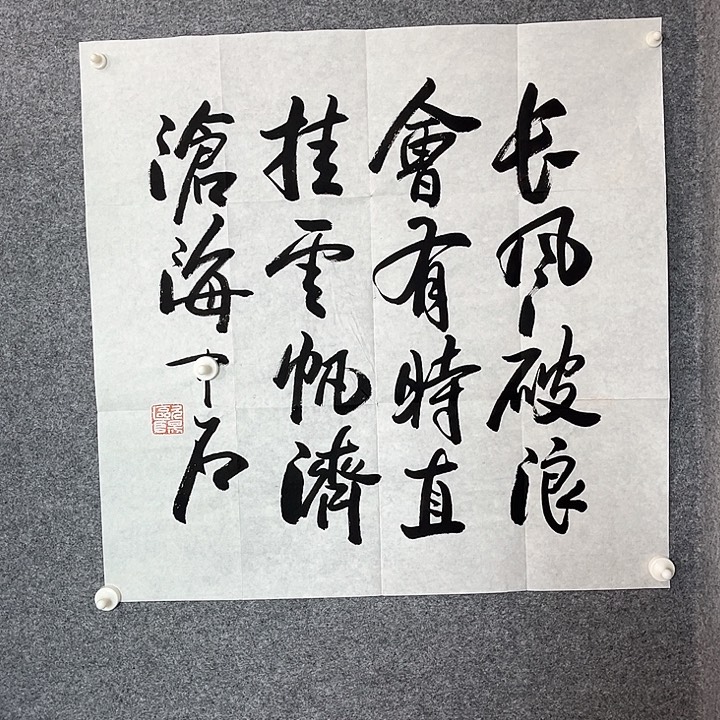 长风破浪
會有時直
挂雲帆濟
滄海 石